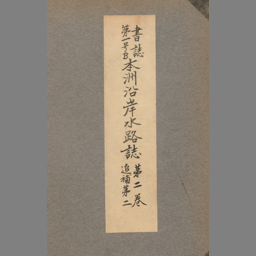 書誌第一号B 本洲沿岸水路誌 第二巻
追補第二